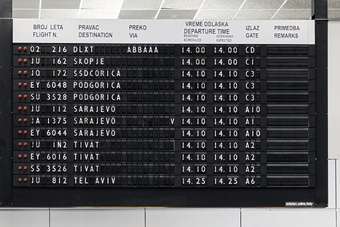 BROJ LETA PRAVAC PREKO VREME ODLASKA IZLAZ PRIMEDBA
FLIGHT N. DESTINATION VIA DEPARTURE TIME GATE REMARKS
216 DLXT ABBAAA 14.00 14.00 CD
JU 162 SKOPJE 14.10 14.10 C1
JO 172 SSDCORICA 14.10 14.10 C3
EY 6048 PODGORICA 14.10 14.10 C3
SU 3528 PODGORICA 14.10 14.10 C3
JU 112 SARAJEVO 14.10 14.10 A10
JA 1375 SARAJEVO V 14.10 14.10 A1
EY 6044 SARAJEVO 14.10 14.10 A10
JU 1N2 TIVAT 14.10 14.10 A2
EY 6016 TIVAT 14.10 14.10 A2
SS 3526 TIVAT 14.10 14.10 A2
JU 812 TEL AVIV 14.25 14.25 A6